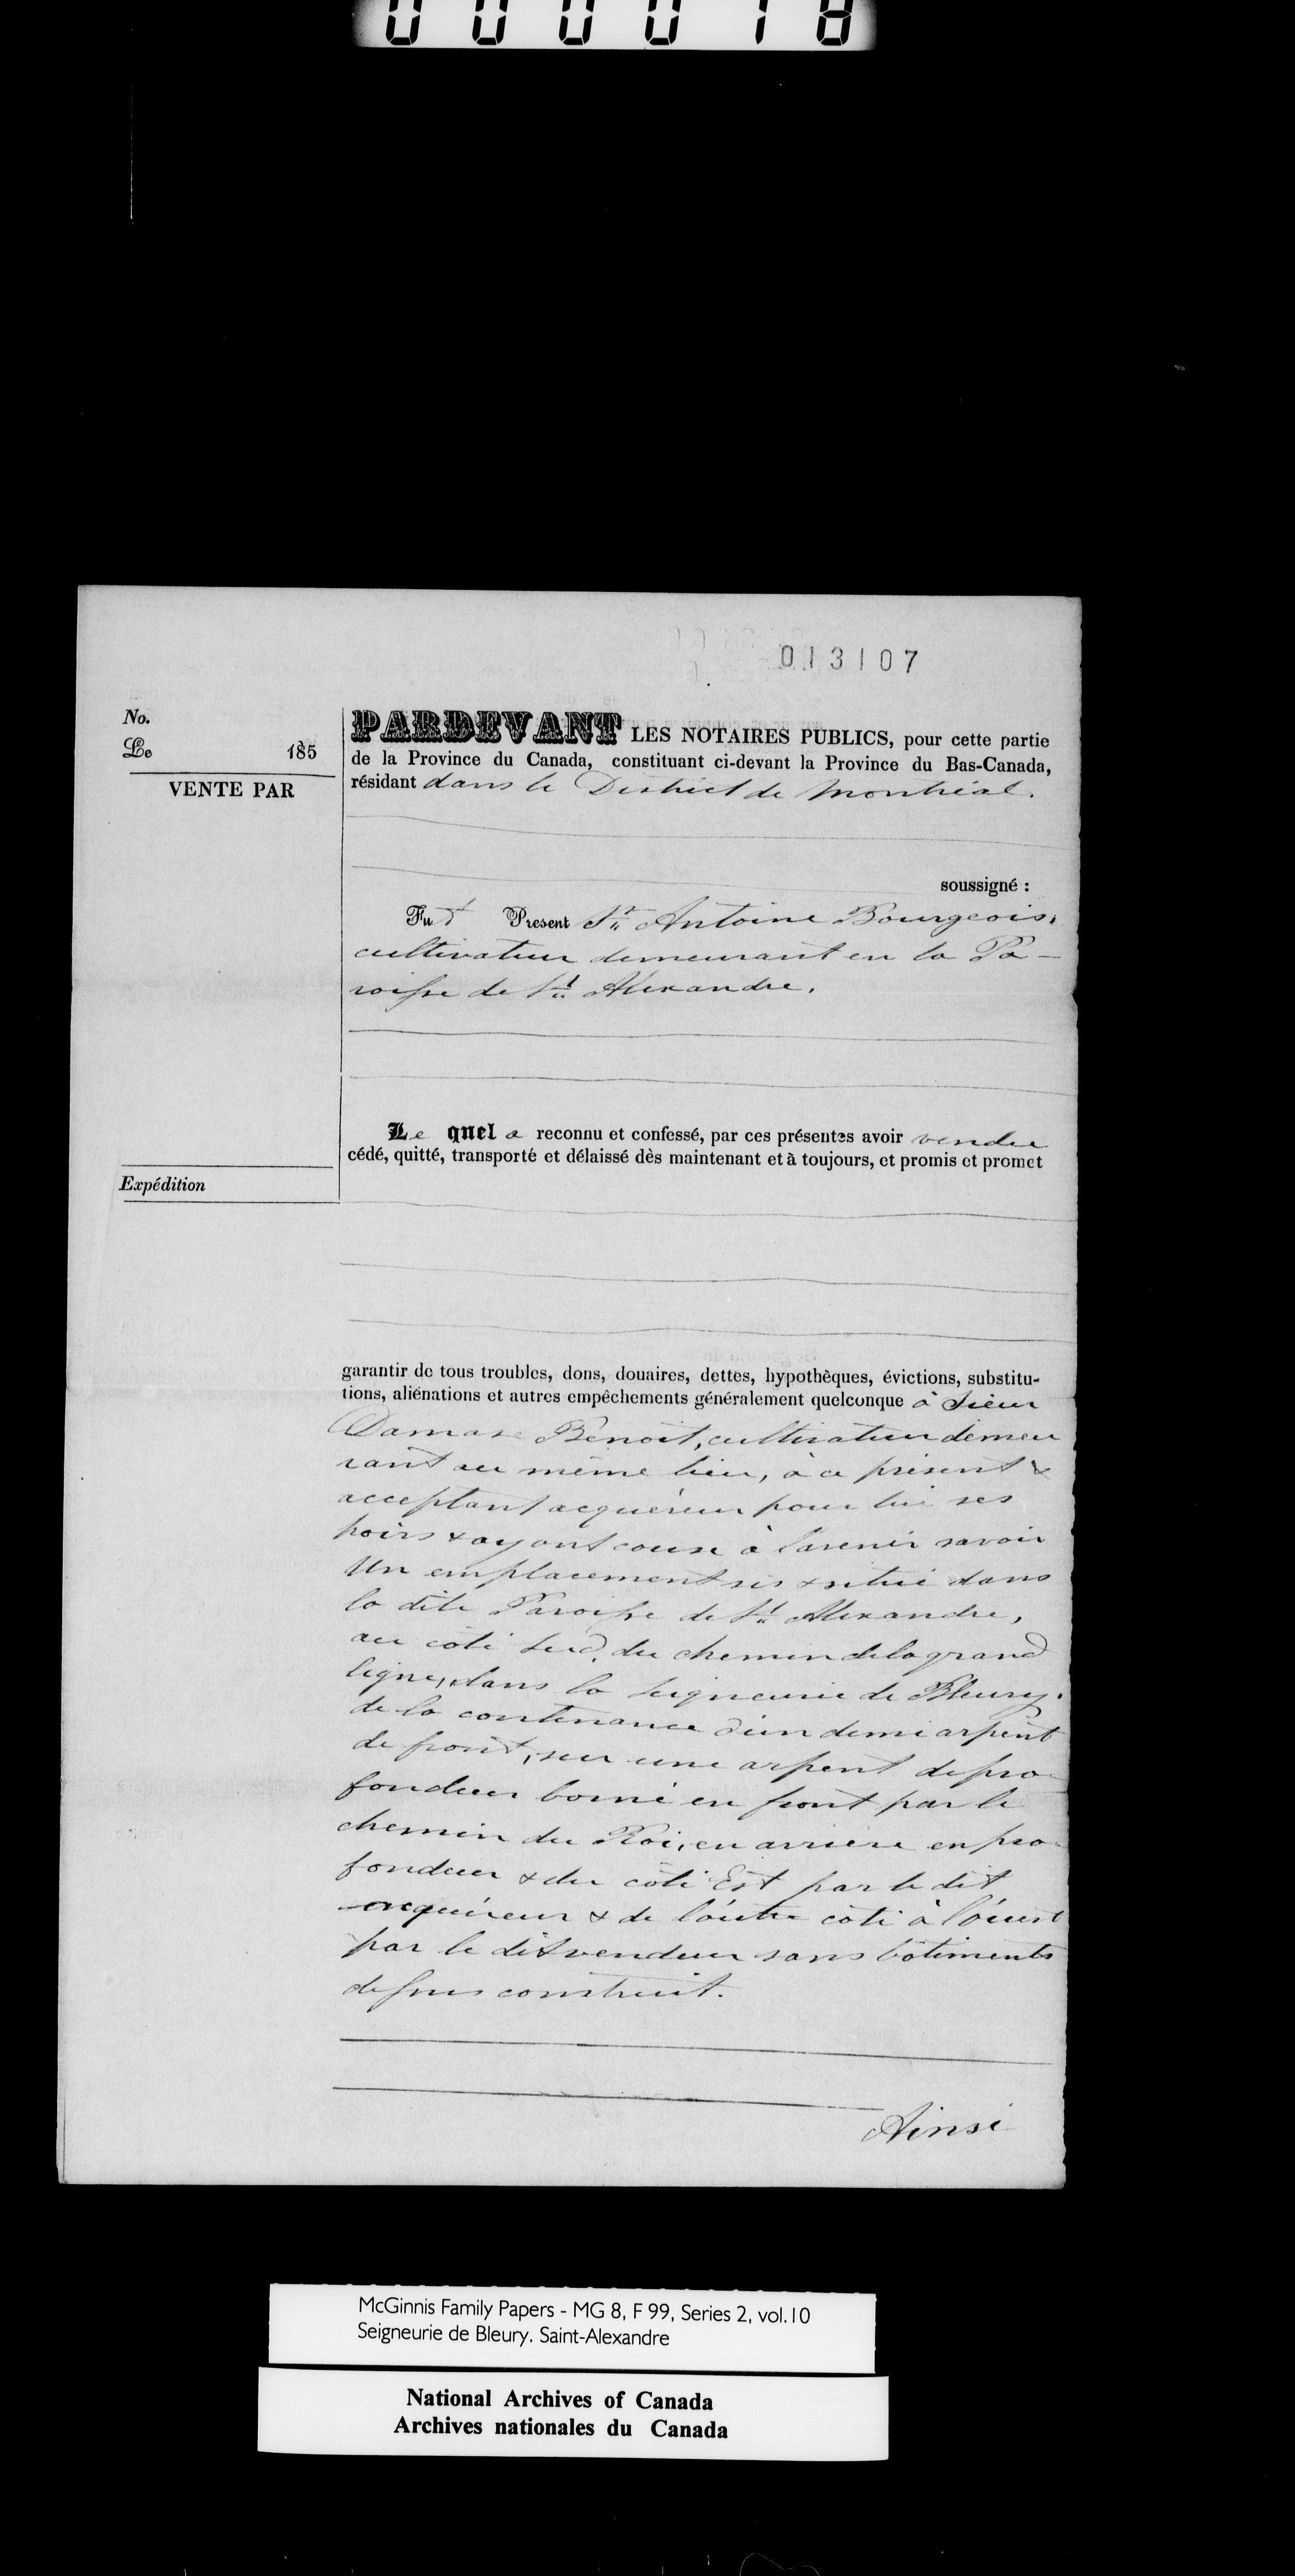 000018
013107
No.
Le 185
VENTE PAR
Expédition
PARDEVANT LES NOTAIRES PUBLICS, pour cette partie
de la Province du Canada, constituant ci-devant la Province du Bas-Canada,
résidant dans le District de Montréal.
soussigné :
Fut Present Sr. Antoine Bourgeois,
cultivateur demeurant en la Pa-
roisse de St. Alexandre.
Le quel a reconnu et confessé, par ces présentes avoir vendu
cédé, quitté, transporté et délaissé dès maintenant et à toujours, et promis et promet
garantir de tous troubles, dons, douaires, dettes, hypothèques, évictions, substitu-
tions, aliénations et autres empêchements généralement quelconque à Sieur
Damase Benoit, cultivateur demeu
rant au même lieu, à ce présent &
acceptant acquéreur pour lui ses
hoirs & ayant cause à l'avenir savoir
Un emplacement sis & situé dans
la dite Paroisse de St. Alexandre,
au côté Sud, du chemin de la grand
ligne, dans la Seigneurie de Bleury.
de la contenance d'un demi arpent
de front, sur une arpent de pro-
fondeur borné en front par le
chemin du Roi, en arrière en pro-
fondeur & du côté Est par le dit
acquéreur & de l'autre côté à l'ouest
par le dit vendeur sans bâtiments
dessus construit.
Ainsi
McGinnis Family Papers - MG 8, F 99, Series 2, vol.10
Seigneurie de Bleury. Saint-Alexandre
National Archives of Canada
Archives nationales du Canada